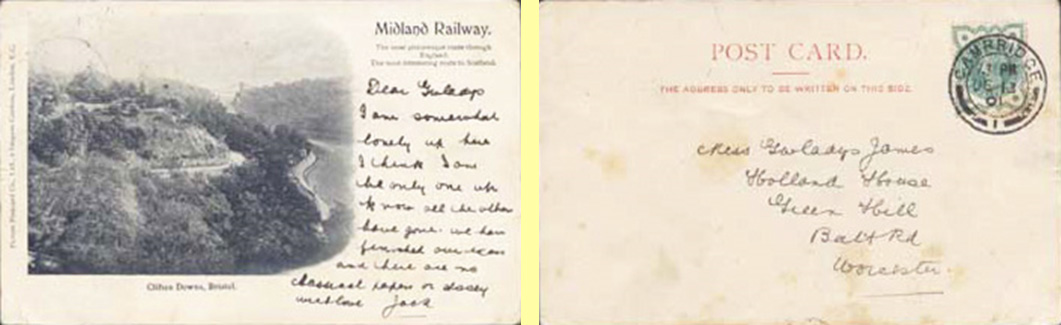 Midland Railway.
The most picturesque route through
England.
The most interesting route to Scotland.
Dear Gwladys
I am somewhat
lonely up here
I think I am
the only one up
now all the other
have gone. we have
finished our exam
and there are no
classical papers or
with love Jack
Clifton Downs, Bristol.
Picture Postcard Co., Ltd.,
London, E.C.
POST CARD.
THE ADDRESS ONLY TO BE WRITTEN ON THIS SIDE.
CAMBRIDGE
PM
DE 13
01
1
Miss Gwladys James
Holland House
Green Hill
Bath Rd
Worcester.